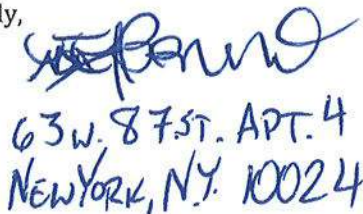 ly,
63 W. 87 ST. APT. 4
NEW YORK, N.Y. 10024